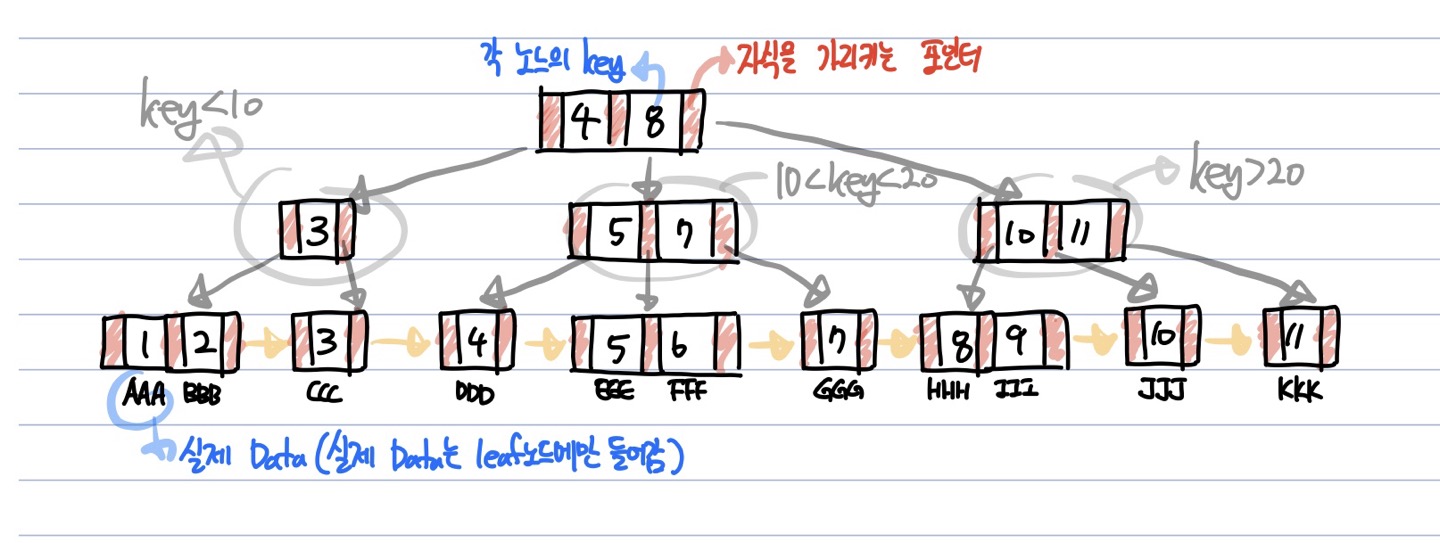 각 노드의 key 자식을 가리키는 포인터
key<10
4 8
10<key<20
key>20
3
5 7
10 11
1 2 3 4 5 6 7 8 9 10 11
AAA BBB CCC DDD EEE FFF GGG HHH III JJJ KKK
실제 Data (실제 Data는 leaf노드에만 들어감)